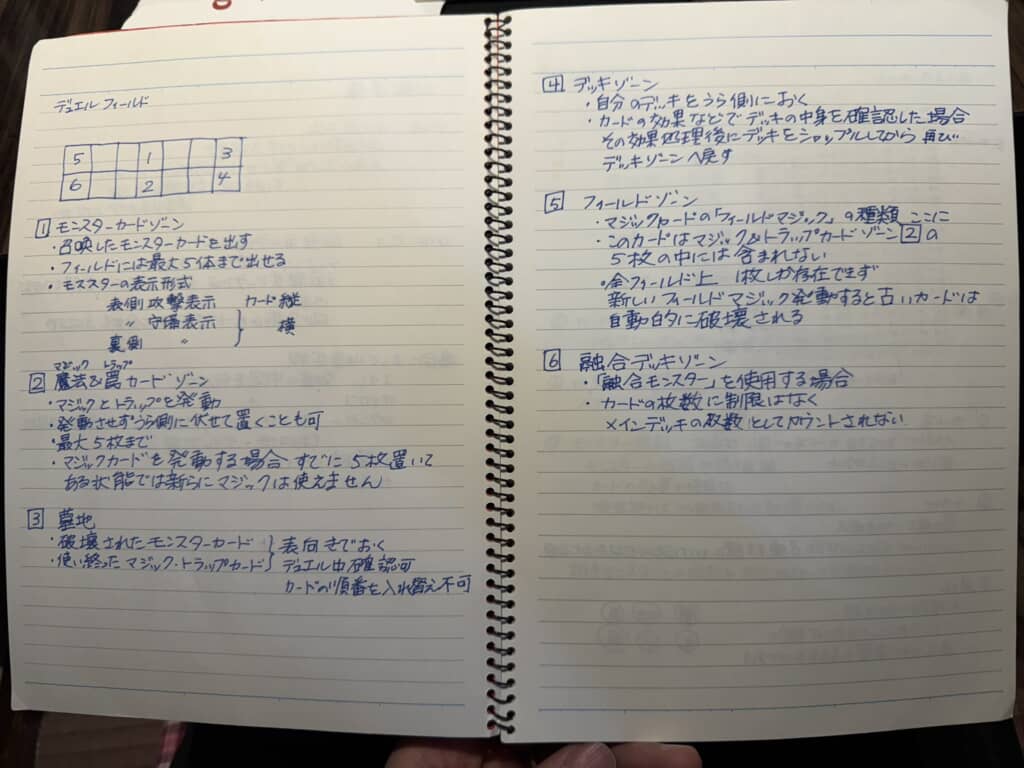 デュエル フィールド
5 1 3
6 2 4
1 モンスターカードゾーン
・召喚したモンスターカードを出す
・フィールドには最大5体まで出せる
・モススターの表示形式
表側 攻撃表示 カード 縦
〃 守備表示 } 横
裏側 〃
マジック トラップ
2 魔法&罠 カードゾーン
・マジックとトラップを発動
・発動させずうら側に伏せて置くことも可
・最大5枚まで
・マジックカードを発動する場合 すでに 5枚置いて
ある状態では新らにマジックは使えません
3 墓地
・破壊されたモンスターカード } 表向きでおく
・使い終った マジック・トラップカード デュエル中確認可
カードの順番を入れ替え不可
4 デッキゾーン
・自分のデッキをうら側におく
・カードの効果などで デッキの中身を確認した場合
その効果処理後にデッキをシャッフルしてから 再び
デッキゾーンへ戻す
5 フィールドゾーン
・マジックカードの「フィールドマジック」の種類 ここに
・このカードはマジック&トラップカードゾーン 2 の
5枚の中には含まれない
・全フィールド上 1枚しか存在できず
新しいフィールドマジック発動すると古いカードは
自動的に破壊される
6 融合デッキゾーン
・「融合モンスター」を使用する場合
・カードの枚数に制限はなく
メインデッキの枚数としてカウントされない